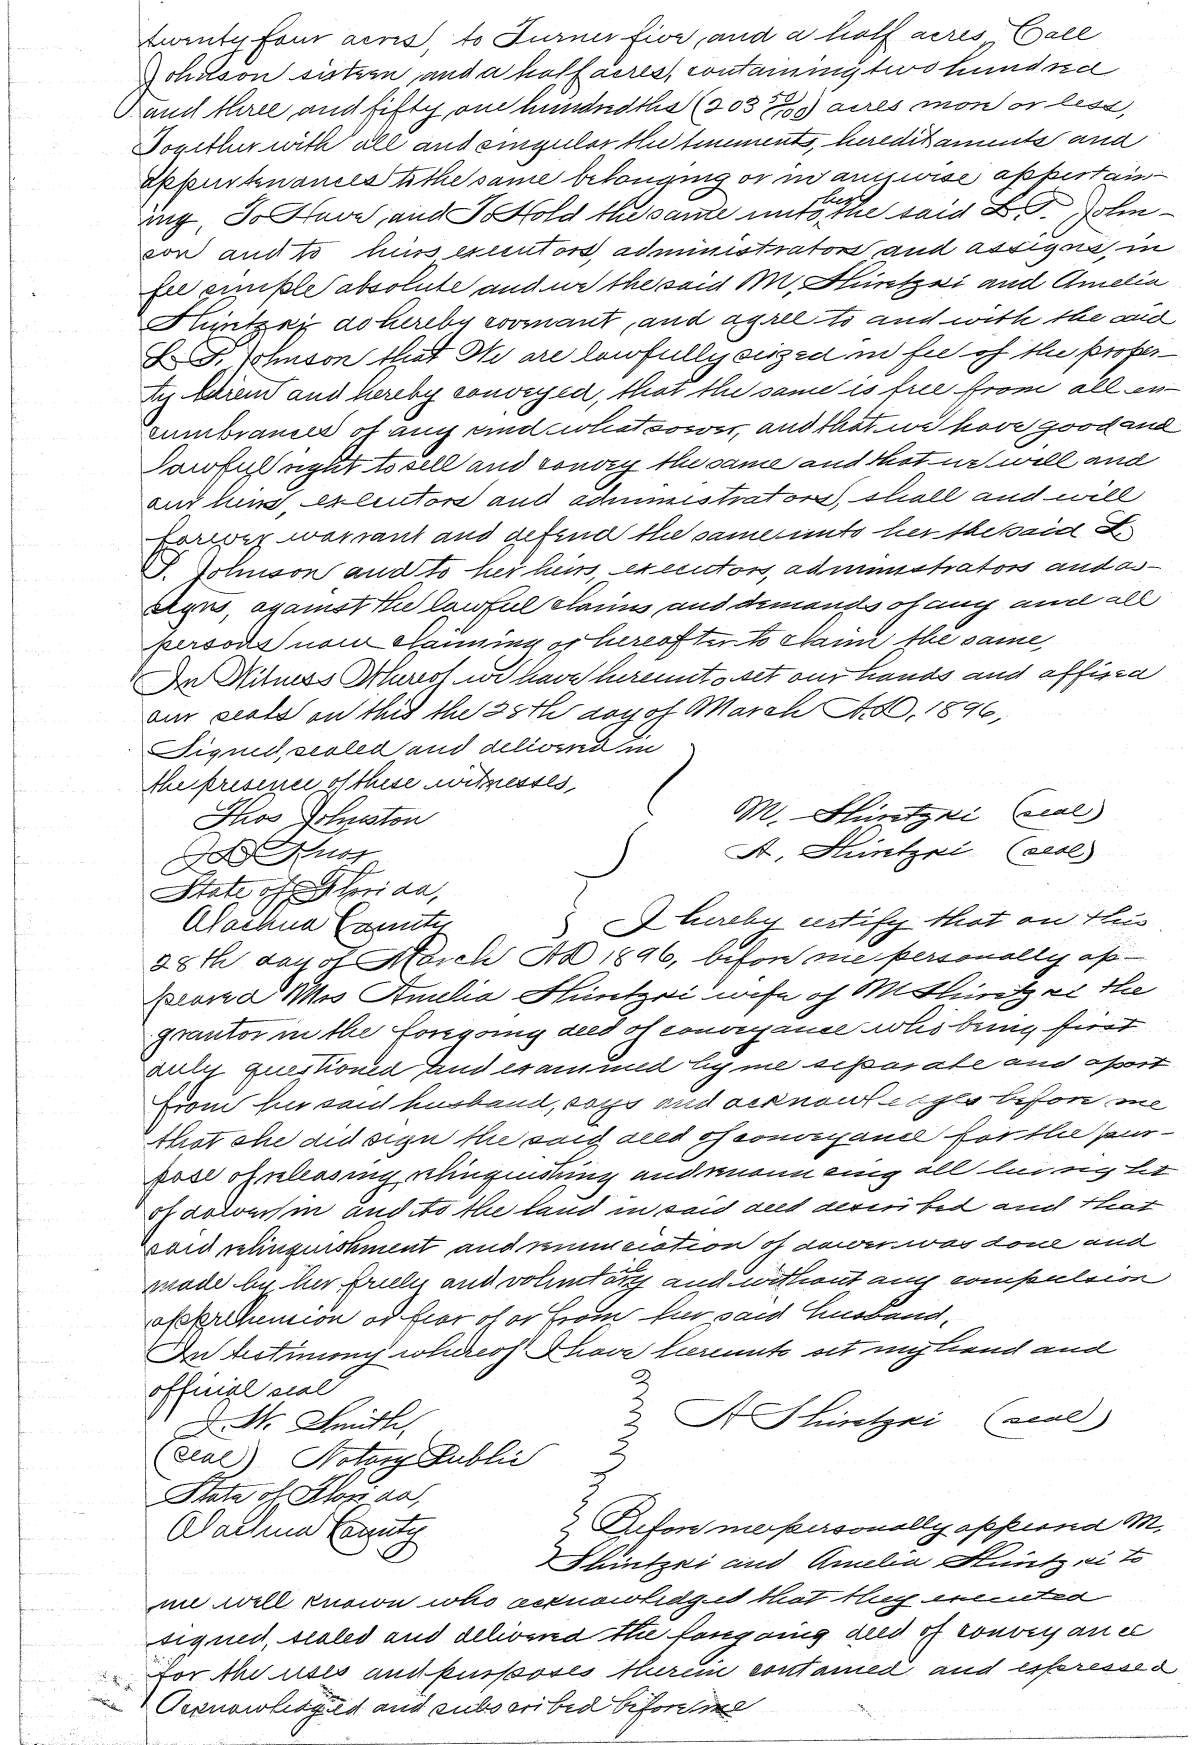 twenty four acres, to Turner five, and a half acres, Call
Johnson sixteen and a half acres, containing two hundred
and three and fifty one hundredths (203 50/100) acres more or less,
Together with all and singular the tenements, hereditaments and
appurtenances to the same belonging or in anywise appertain-
ing, To Have, and To Hold the same unto her the said L. T. John-
son and to heirs, executors, administrators and assigns, in
fee simple absolute and we the said M, and Amelia
do hereby covenant, and agree to and with the said
L. T. Johnson that We are lawfully seized in fee of the proper-
ty herein and hereby conveyed, that the same is free from all en-
cumbrances of any kind whatsoever, and that we have good and
lawful right to sell and convey the same and that we will and
our heirs, executors and administrators, shall and will
forever warrant and defend the same unto her the said L.
T. Johnson and to her heirs, executors, administrators and as-
signs, against the lawful claims and demands of any and all
persons now claiming or hereafter to claim the same,
In Witness Whereof we have hereunto set our hands and affixed
our seals on this the 28th day of March A.D. 1896,
Signed, sealed and delivered in
the presence of these witnesses,
Thos Johnston M. (seal)
A. (seal)
State of Florida,
Alachua County I hereby certify that on this
28th day of March AD 1896, before me personally ap-
peared Mrs Amelia wife of M the
grantor in the foregoing deed of conveyance who being first
duly questioned and examined by me separate and apart
from her said husband, says and acknowledges before me
that she did sign the said deed of conveyance for the pur-
pose of releasing, relinquishing and renouncing all her right
of dower in and to the land in said deed described and that
said relinquishment and renunciation of dower was done and
made by her freely and voluntary and without any compulsion
apprehension or fear of or from her said husband.
In testimony whereof I have hereunto set my hand and
official seal
W. Smith, A (seal)
(seal) Notary Public
State of Florida,
Alachua County Before me personally appeared M.
and Amelia to
me well known who acknowledged that they executed
signed, sealed and delivered the foregoing deed of conveyance
for the uses and purposes therein contained and expressed
Acknowledged and subscribed before me